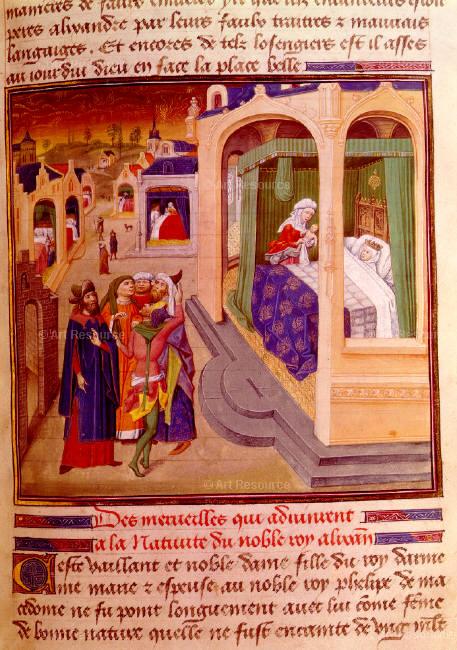 manieres de faulx
peres alixandre par leurs faulx traitres & mauuais
langaiges. Et encores de telz losengiers est il asses
au iourdui dieu en face la place belle
© Art Resource
© Art Resource
© Art Resource
© Art Resource
Des merueilles qui aduinrent
a la Natiuite du noble roy alixan
Ceste vaillant et noble dame fille du roy darme
nie marie & espeuse au noble roy phelipe de ma
cedonie ne fu point longuement auec lui come feme
de bonne nature quelle ne fust encainte de vng